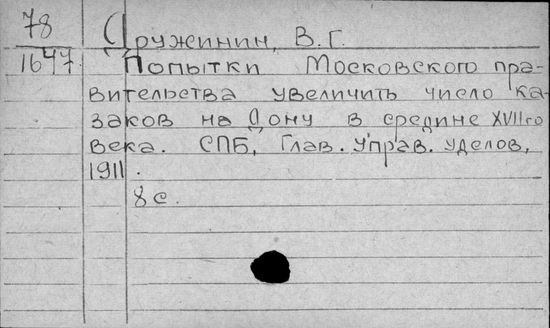 78
Дружинин, В. Г.
1647.
Попытки Московского пра-
вительства увеличить число ка-
заков на Дону в средине XVII-го
века. СПБ, Глав. Управ. уделов,
1911.
8 с.